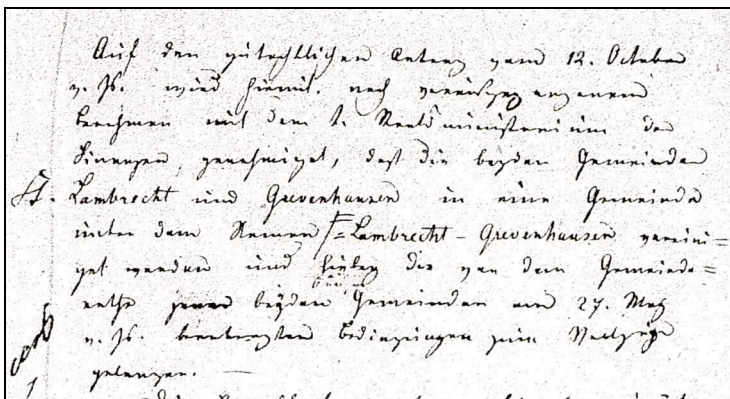 Auf den gutachtlichen Antrag vom 12. October
v. Js. wird hiemit, nach vorausgegangenem
Benehmen mit dem k. Staatsministerium der
Finanzen, genehmiget, daß die beyden Gemeinden
St. Lambrecht und Grevenhausen in eine Gemeinde
unter dem Namen St=Lambrecht-Grevenhausen verei­ni=
get werden und hiebey die von dem Gemeinde=
rathe beyden Gemeinden am 27. May
v. Js. beantragten Bedingungen zum Vollzuge
gelangen.